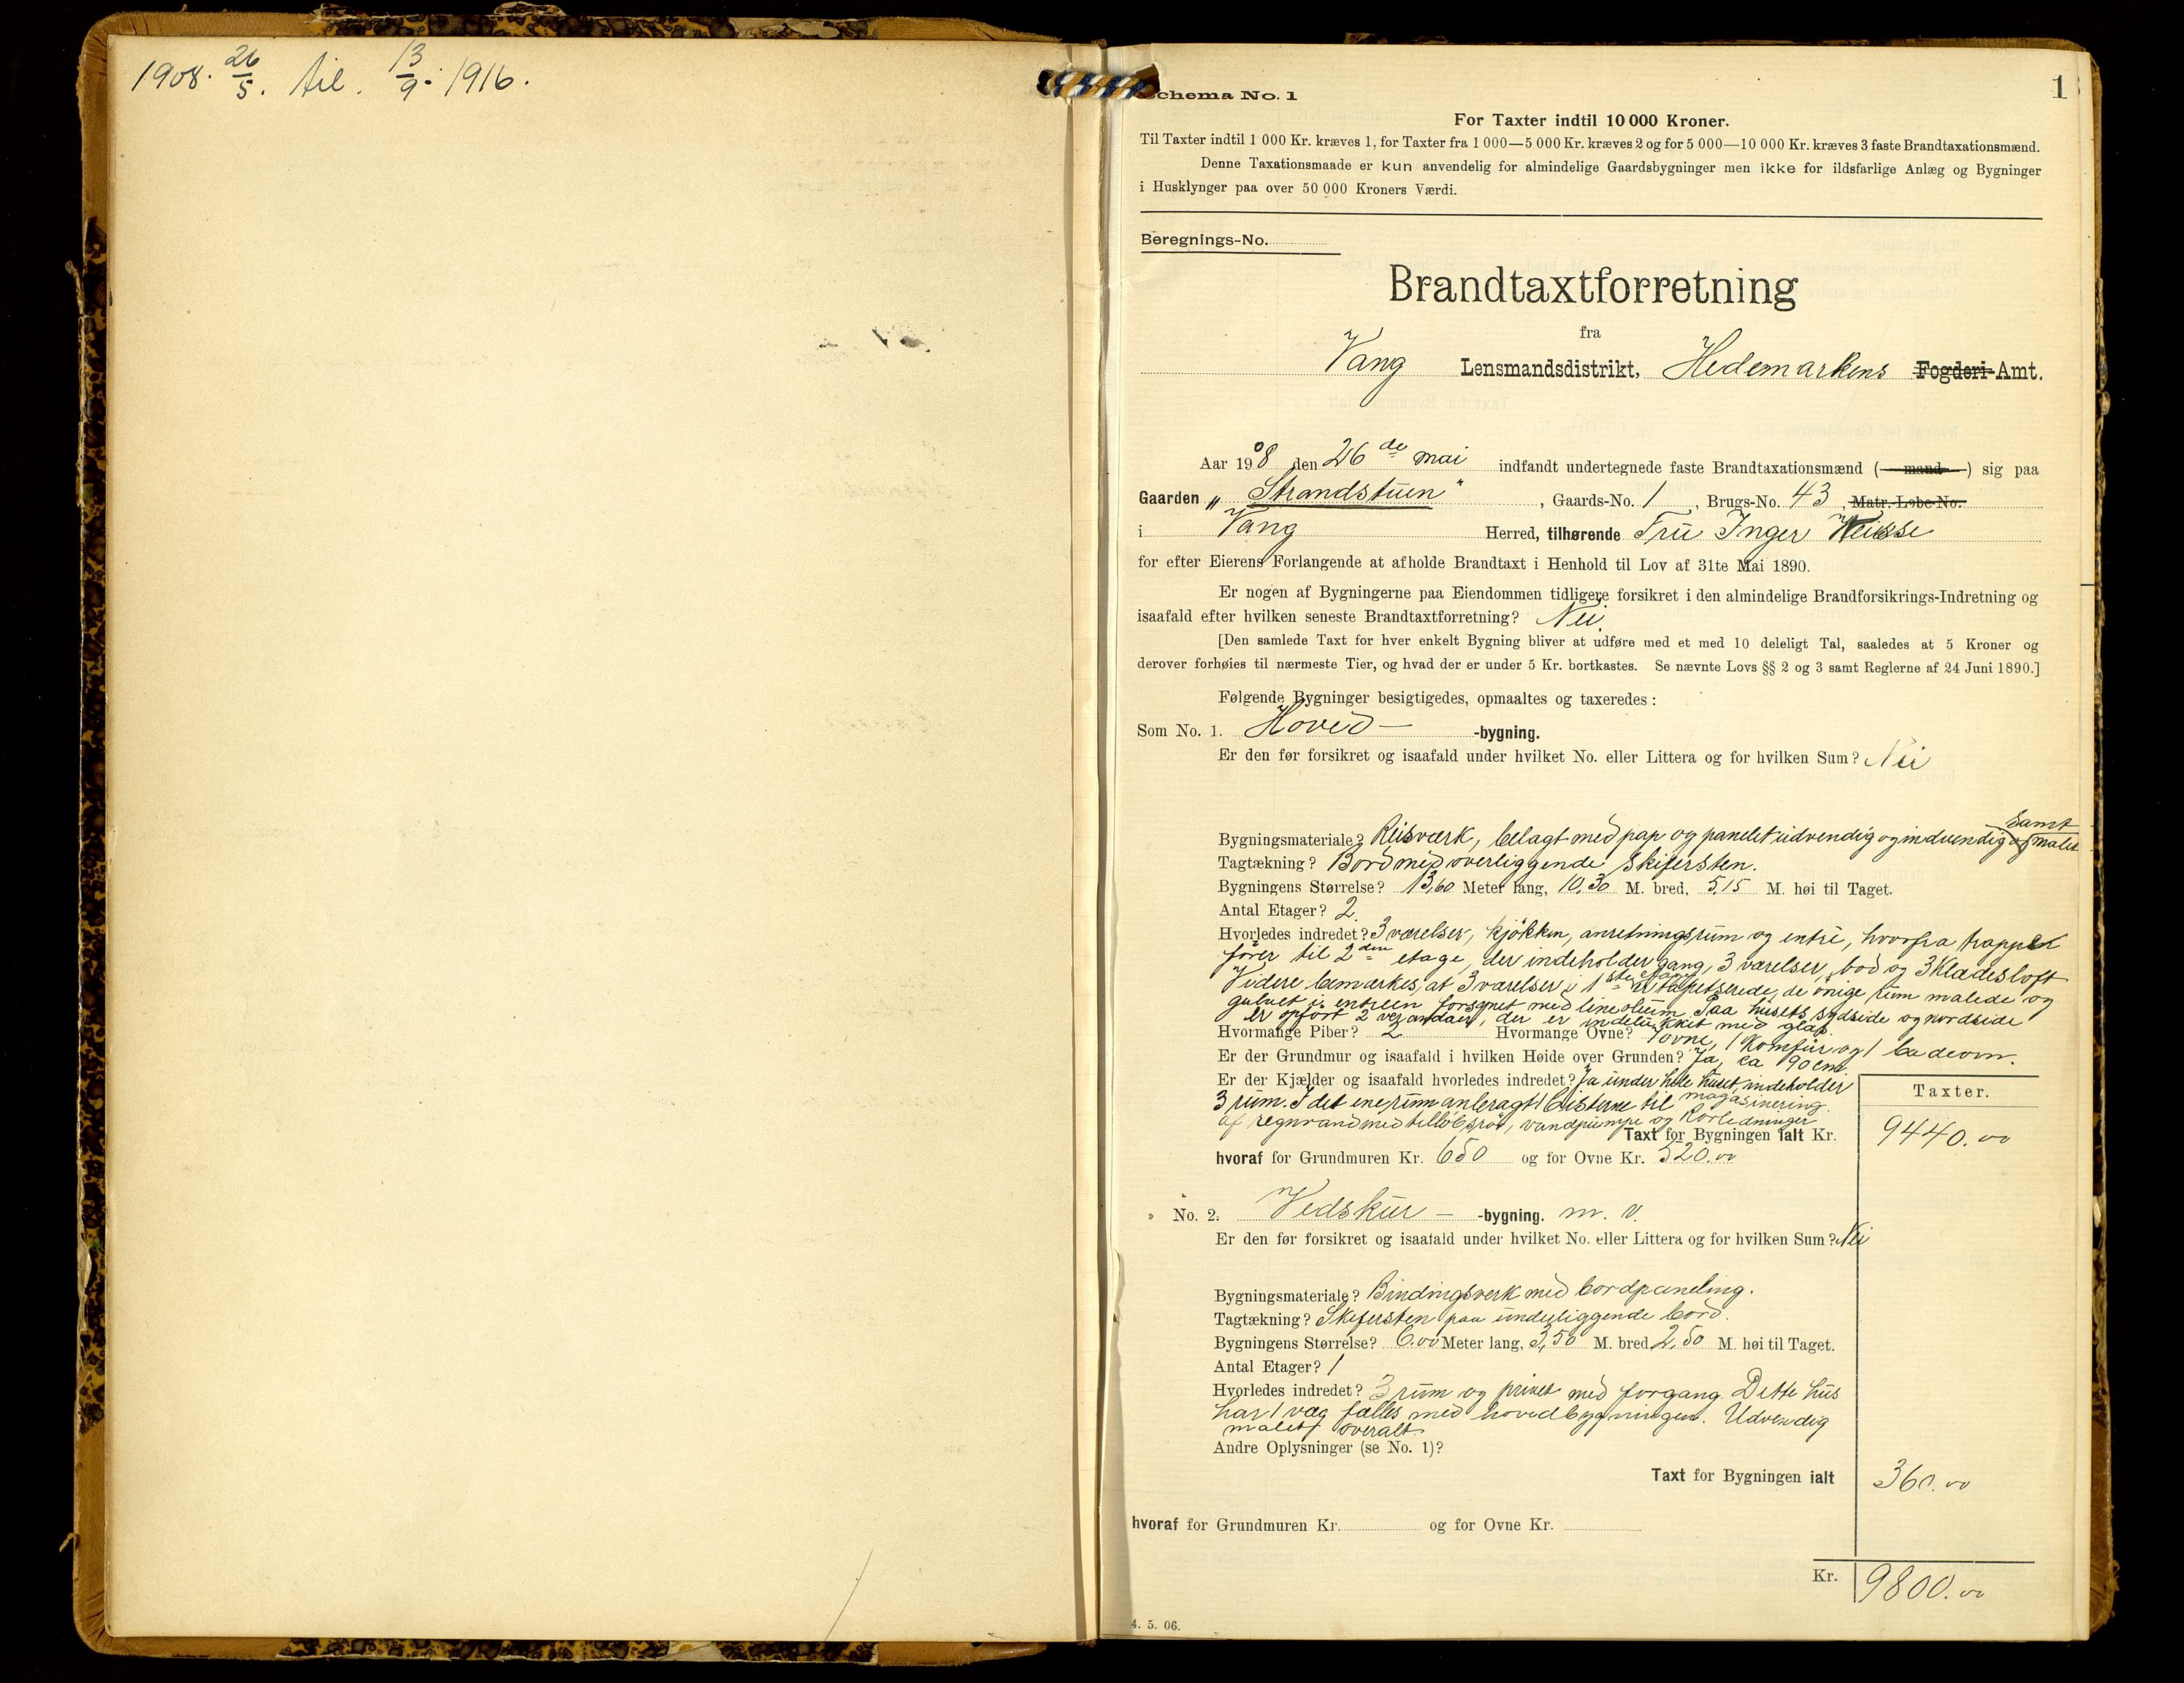 1908. 26/5. til. 13/9. 1916.
1
Schema No. 1
For Taxter indtil 10 000 Kroner.
Til Taxter indtil 1 000 Kr. kræves 1, for Taxter fra 1 000—5 000 Kr. kræves 2 og for 5 000—10 000 Kr. kræves 3 faste Brandtaxationsmænd.
Denne Taxationsmaade er kun anvendelig for almindelige Gaardsbygninger men ikke for ildsfarlige Anlæg og Bygninger
i Husklynger paa over 50 000 Kroners Værdi.
Beregnings-No.
Brandtaxtforretning
fra
Vang Lensmandsdistrikt, Hedemarkens Fogderi-Amt.
Aar 1908 den 26de mai indfandt undertegnede faste Brandtaxationsmænd (—mand—) sig paa
Gaarden „Strandstuen", Gaards-No. 1, Brugs-No. 43, Matr. Løbe-No.
i Vang Herred, tilhørende Fru Inger
for efter Eierens Forlangende at afholde Brandtaxt i Henhold til Lov af 31te Mai 1890.
Er nogen af Bygningerne paa Eiendommen tidligere forsikret i den almindelige Brandforsikrings-Indretning og
isaafald efter hvilken seneste Brandtaxtforretning? Nei.
[Den samlede Taxt for hver enkelt Bygning bliver at udføre med et med 10 deleligt Tal, saaledes at 5 Kroner og
derover forhøies til nærmeste Tier, og hvad der er under 5 Kr. bortkastes. Se nævnte Lovs §§ 2 og 3 samt Reglerne af 24 Juni 1890.]
Følgende Bygninger besigtigedes, opmaaltes og taxeredes:
Som No. 1. Hoved- -bygning.
Er den før forsikret og isaafald under hvilket No. eller Littera og for hvilken Sum? Nei
samt
Bygningsmateriale? Reisværk, belagt med pap og panelet udvendig og indvendig og malet
Tagtækning? Bord med overliggende skifersten.
Bygningens Størrelse? 13,60 Meter lang, 10,30 M. bred, 5,15 M. høi til Taget.
Antal Etager? 2.
Hvorledes indredet? 3 værelser, kjøkken, anretningsrum og entré, hvorfra trapper
fører til 2den etage, der indeholder gang, 3 værelser, bod og 3 Klædesloft
Videre bemærkes, at 3 værelser i 1ste etage er tapetserede, de øvrige rum malede og
gulvet i entréen forsynet med lineoleum. Paa husets sydside og nordside
er opført 2 verandaer, der er indelukket med glas.
Hvormange Piber? 2 Hvormange Ovne? 7 ovne, 1 Komfür og 1 badeovn.
Er der Grundmur og isaafald i hvilken Høide over Grunden? Ja, ca 90 cm.
Er der Kjælder og isaafald hvorledes indredet? Ja under hele huset, indeholder
3 rum. I det ene rum anbragt 1 Cisterne til magasinering
af regnvand med tilløbsrør, vandpumpe og Rørledninger
Taxter.
Taxt for Bygningen ialt Kr. 9440.00
hvoraf for Grundmuren Kr. 650 og for Ovne Kr. 520.00
» No. 2. Vedskur- -bygning. m. v.
Er den før forsikret og isaafald under hvilket No. eller Littera og for hvilken Sum? Nei
Bygningsmateriale? Bindingsverk med bordpaneling.
Tagtækning? Skifersten paa underliggende bord.
Bygningens Størrelse? 6.00 Meter lang, 3,50 M. bred 2,50 M. høi til Taget.
Antal Etager? 1
Hvorledes indredet? 3 rum og privet med forgang. Dette hus
har 1 væg fælles med hovedbygningen. Udvendig
malet overalt.
Andre Oplysninger (se No. 1)?
Taxt for Bygningen ialt 360.00
hvoraf for Grundmuren Kr. og for Ovne Kr.
Kr. 9800.00
4. 5. 06.